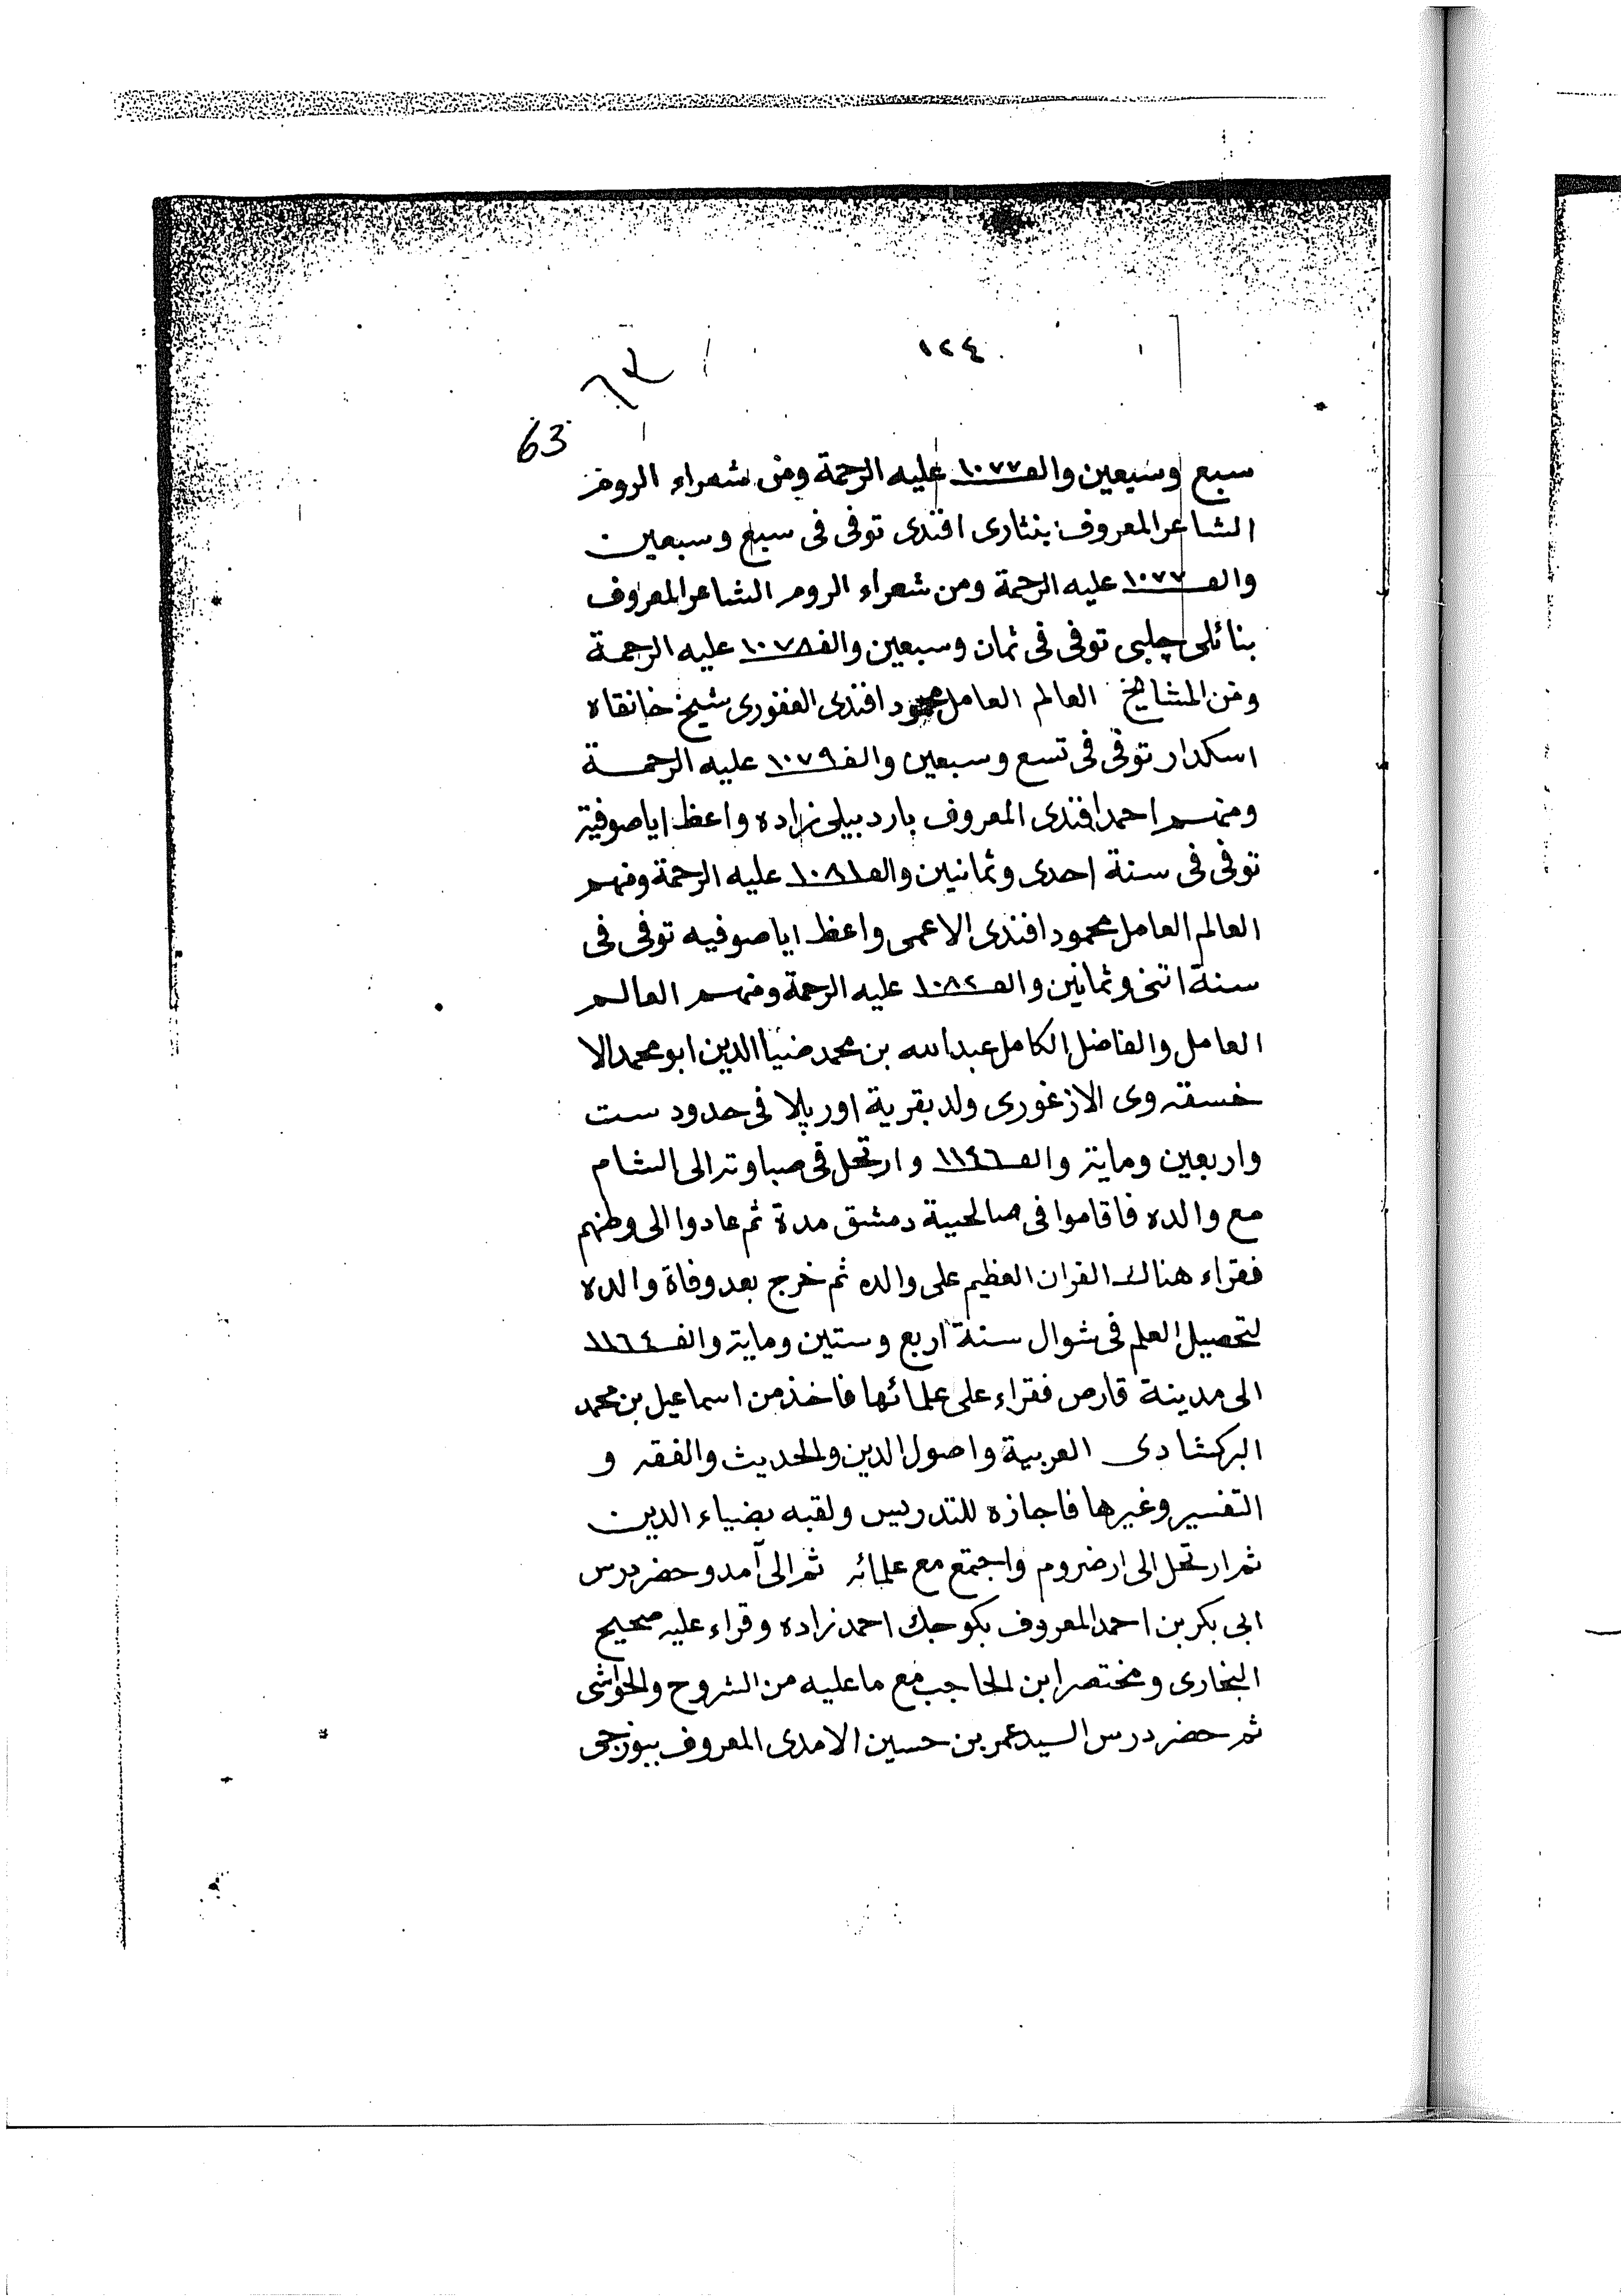 ١٢٤
٦٣
63
سبع وسبعين والف ١٠٧٧ عليه الرحمة ومن شعراء الروم
الشاعر المعروف بنثارى افندى توفى فى سبع وسبعين
والف ١٠٧٧ عليه الرحمة ومن شعراء الروم الشاعر المعروف
بنائلى چلبى توفى فى ثمان وسبعين والف ١٠٧٨ عليه الرحمة
ومن المشايخ العالم العامل محمود افندى الغفورى شيخ خانقاه
اسكدار توفى فى تسع وسبعين والف ١٠٧٩ عليه الرحمة
ومنهم احمد افندى المعروف باردبيلى زاده واعظ اياصوفية
توفى فى سنة احدى وثمانين والف ١٠٨١ عليه الرحمة ومنهم
العالم العامل محمود افندى الاعمى واعظ اياصوفيه توفى فى
سنة اثنى وثمانين والف ١٠٨٢ عليه الرحمة ومنهم العالم
العامل والفاضل الكامل عبد الله بن محمد ضيا الدين ابو محمد الا
خسقه وى الازغورى ولد بقرية اورپلا فى حدود ست
واربعين وماية والف ١١٤٦ وارتحل فى صباوته الى الشام
مع والده فاقاموا فى صالحية دمشق مدة ثم عادوا الى وطنهم
فقراء هناك القران العظيم على والده ثم خرج بعد وفاة والده
لتحصيل العلم فى شوال سنة اربع وستين وماية والف ١١٦٤
الى مدينة قارص فقراء على علمائها فاخذ من اسماعيل بن محمد
البركشادى العربية واصول الدين والحديث والفقه و
التفسير وغيرها فاجازه للتدريس ولقبه بضياء الدين
ثم ارتحل الى ارضروم واجتمع مع علمائه ثم الى آمد وحضر درس
ابى بكر بن احمد المعروف بكوجك احمد زاده وقراء عليه صحيح
البخارى ومختصر ابن الحاجب مع ما عليه من الشروح والحواشى
ثم حضر درس السيد عمر بن حسين الامدى المعروف